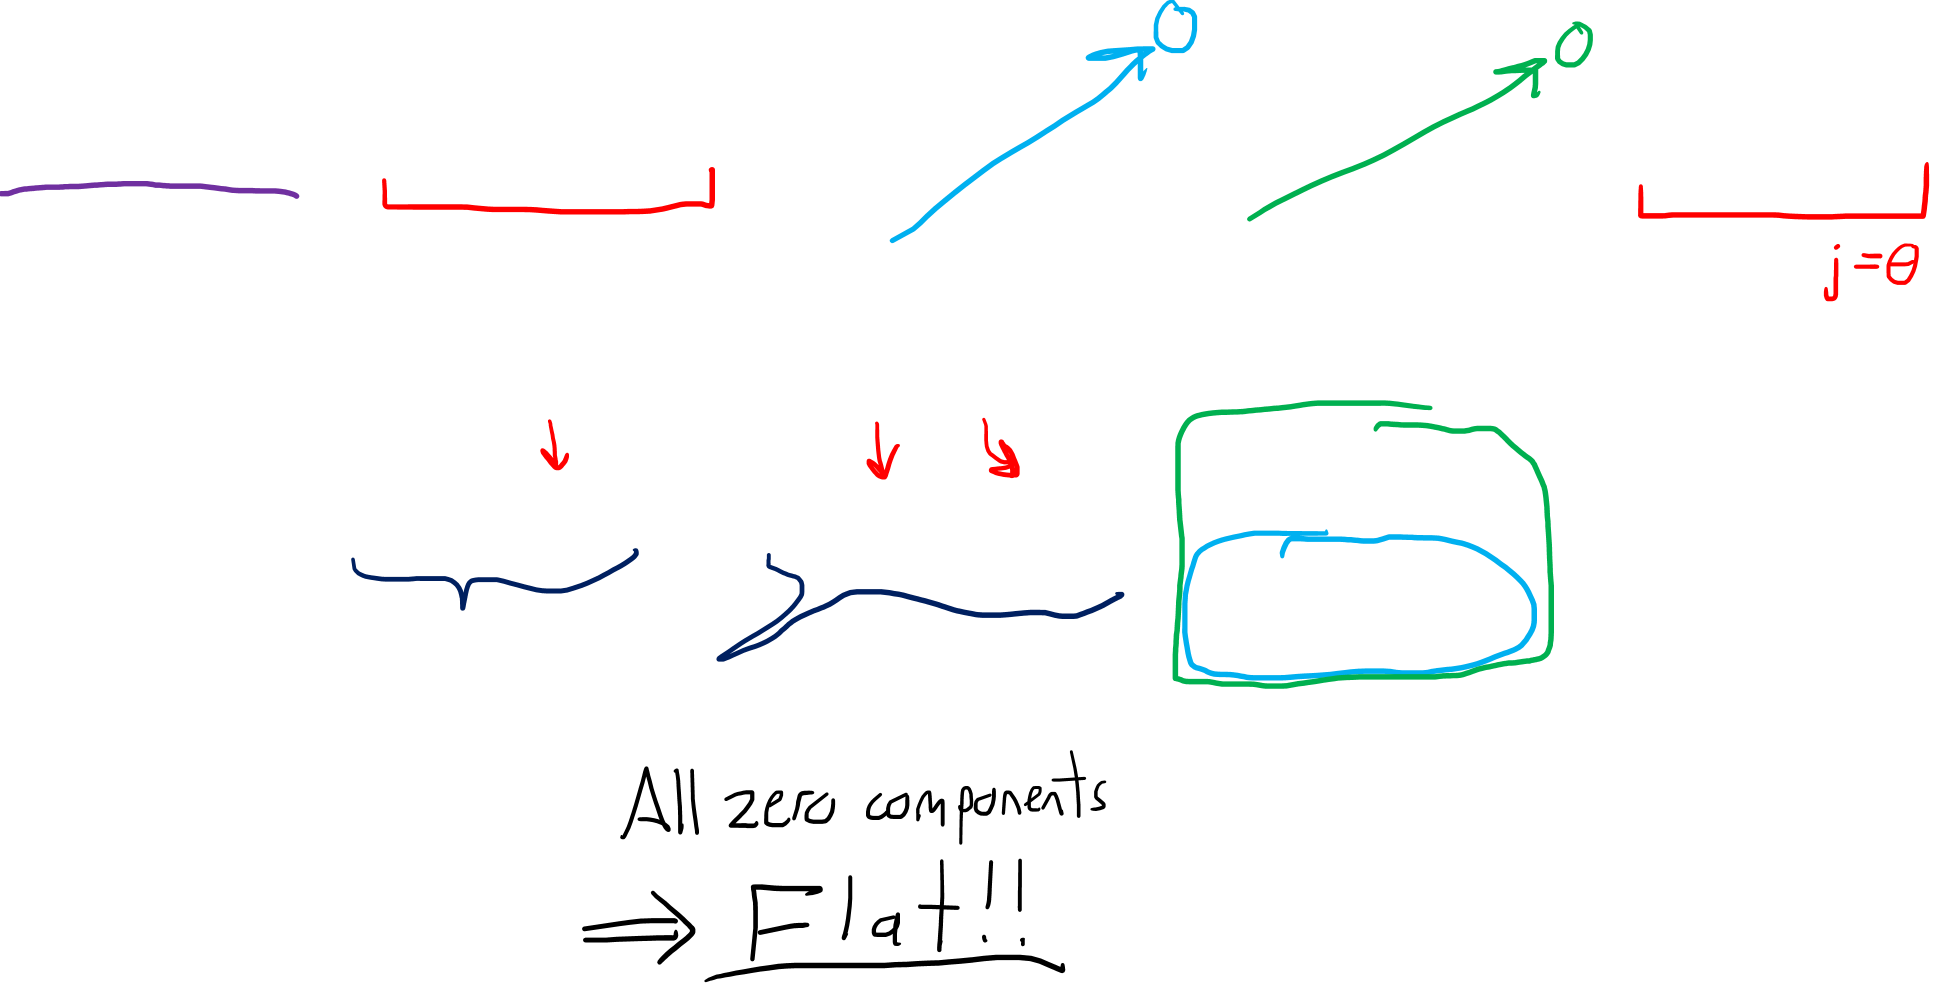 0 0
j = θ
All zero components
⇒ Flat!!